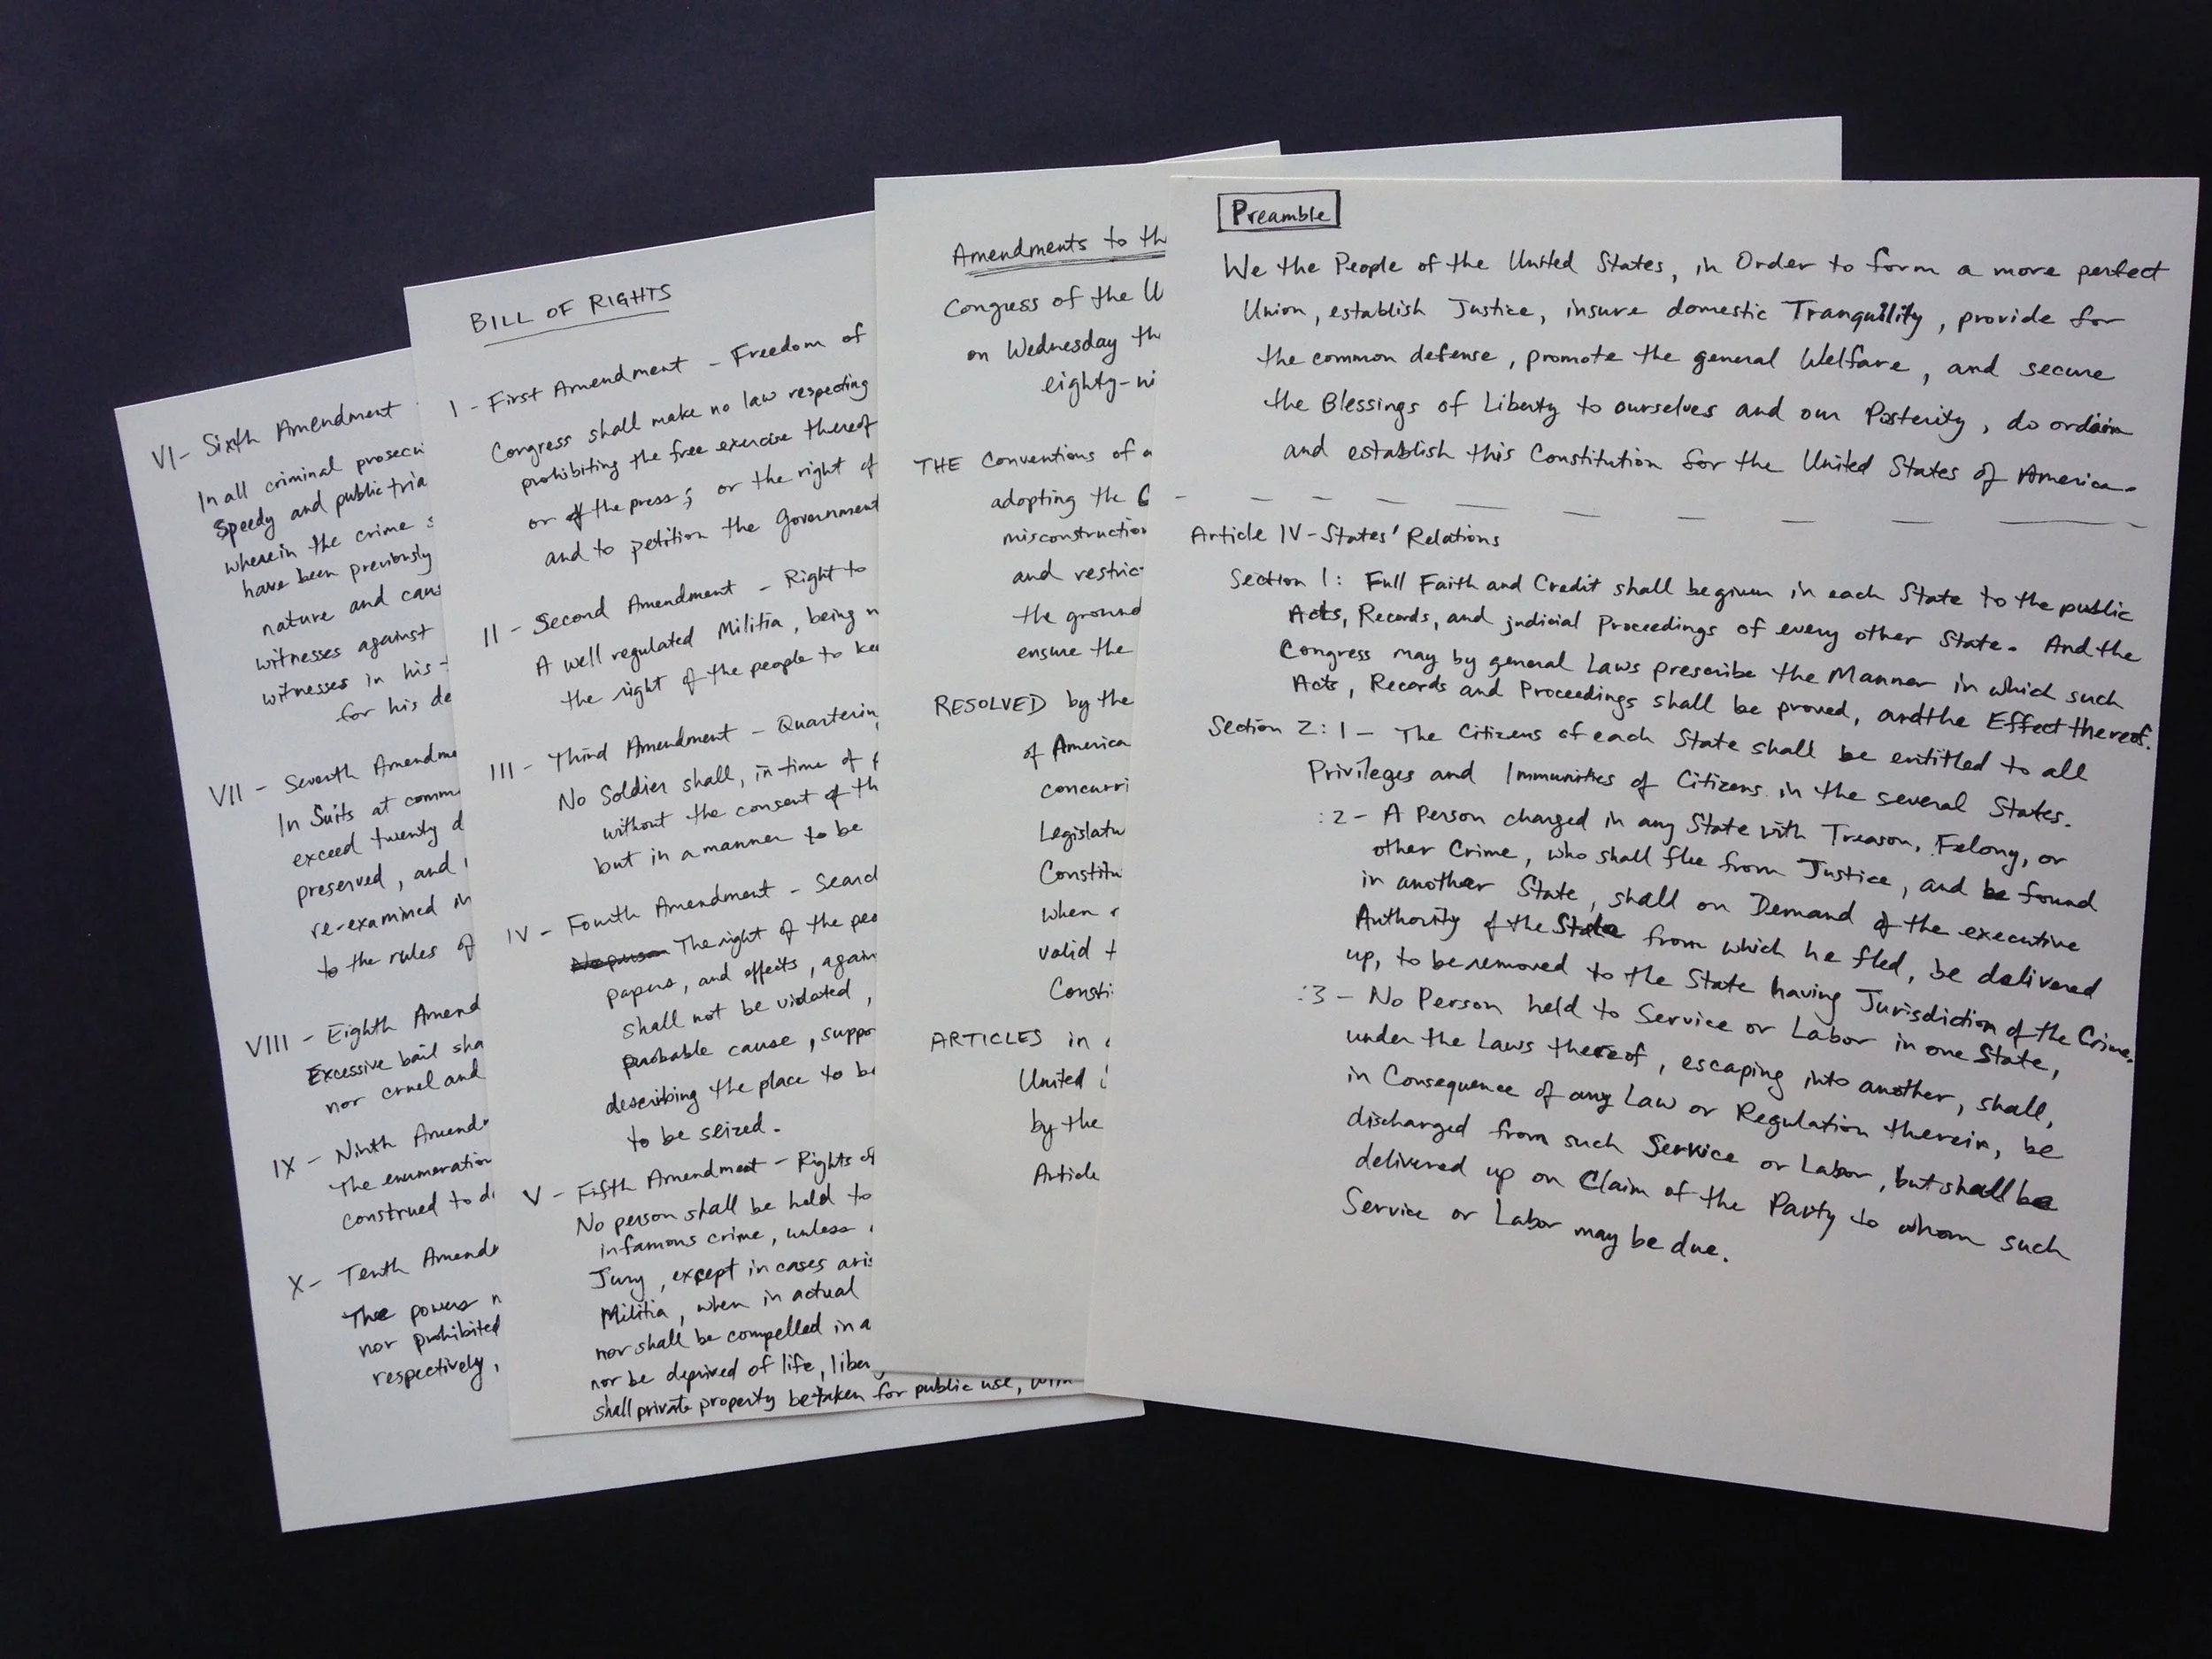 VI- Sixth Amendment
In all criminal prosecu
Speedy and public tria
wherein the crime s
have been previously
nature and cau
witnesses against
witnesses in his
for his de
VII - Seventh Amendme
In Suits at comm
exceed twenty d
preserved, and
re-examined in
to the rules of
VIII - Eighth Amend
Excessive bail sha
nor cruel and
IX - Ninth Amend
The enumeration
construed to d
X- Tenth Amend
The powers n
nor prohibited
respectively,
BILL OF RIGHTS
I - First Amendment - Freedom of
Congress shall make no law respecting
prohibiting the free exercise thereof
or of the press; or the right of
and to petition the Government
II - Second Amendment - Right to
A well regulated Militia, being n
the right of the people to kee
III - Third Amendment - Quartering
No Soldier shall, in time of p
without the consent of th
but in a manner to be
IV - Fourth Amendment - Searc
No person The right of the peo
papers, and effects, again
shall not be violated,
probable cause, suppo
describing the place to be
to be seized.
V - Fifth Amendment - Rights of
No person shall be held to
infamous crime, unless
Jury, except in cases aris
Militia, when in actual
nor shall be compelled in a
nor be deprived of life, liber
shall private property be taken for public use, with
Amendments to th
Congress of the U
on Wednesday th
eighty-ni
THE Conventions of a
adopting the C
misconstruction
and restric
the ground
ensure the
RESOLVED by the
of America
concurri
Legislatu
Constitu
when r
valid t
Consti
ARTICLES in
United
by the
Article
Preamble
We the People of the United States, in Order to form a more perfect
Union, establish Justice, insure domestic Tranquility, provide for
the common defense, promote the general Welfare, and secure
the Blessings of Liberty to ourselves and our Posterity, do ordain
and establish this Constitution for the United States of America.
Article IV-States' Relations
Section 1: Full Faith and Credit shall be given in each State to the public
Acts, Records, and judicial Proceedings of every other State. And the
Congress may by general Laws prescribe the Manner in which such
Acts, Records and Proceedings shall be proved, and the Effect thereof.
Section 2: 1 - The Citizens of each State shall be entitled to all
Privileges and Immunities of Citizens in the several States.
:2- A Person charged in any State with Treason, Felony, or
other Crime, who shall flee from Justice, and be found
in another State, shall on Demand of the executive
Authority of the State from which he fled, be delivered
up, to be removed to the State having Jurisdiction of the Crime.
:3 - No Person held to Service or Labor in one State,
under the Laws thereof, escaping into another, shall,
in Consequence of any Law or Regulation therein, be
discharged from such Service or Labor, but shall be
delivered up on Claim of the Party to whom such
Service or Labor may be due.